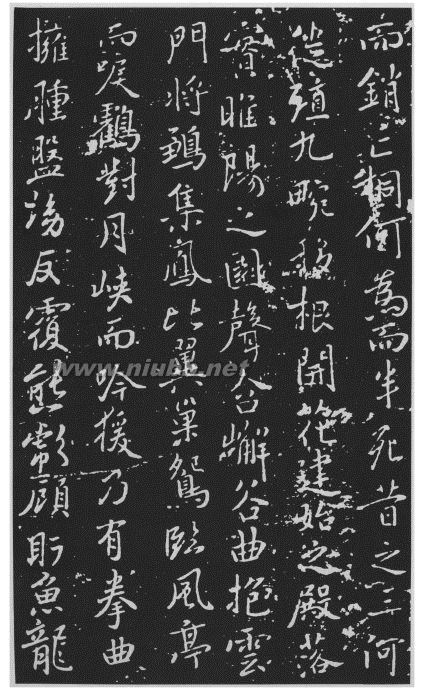 而銷亡桐何為而半死昔之三河
徙殖九畹移根開花建始之殿落
實睢陽之園聲含嶰谷曲抱雲
門將鵷集鳳比翼巢鴛臨風亭
而唳鸖對月峽而吟猨乃有拳曲
擁腫盤坳反覆熊彪顧盻魚龍
www.niubb.net